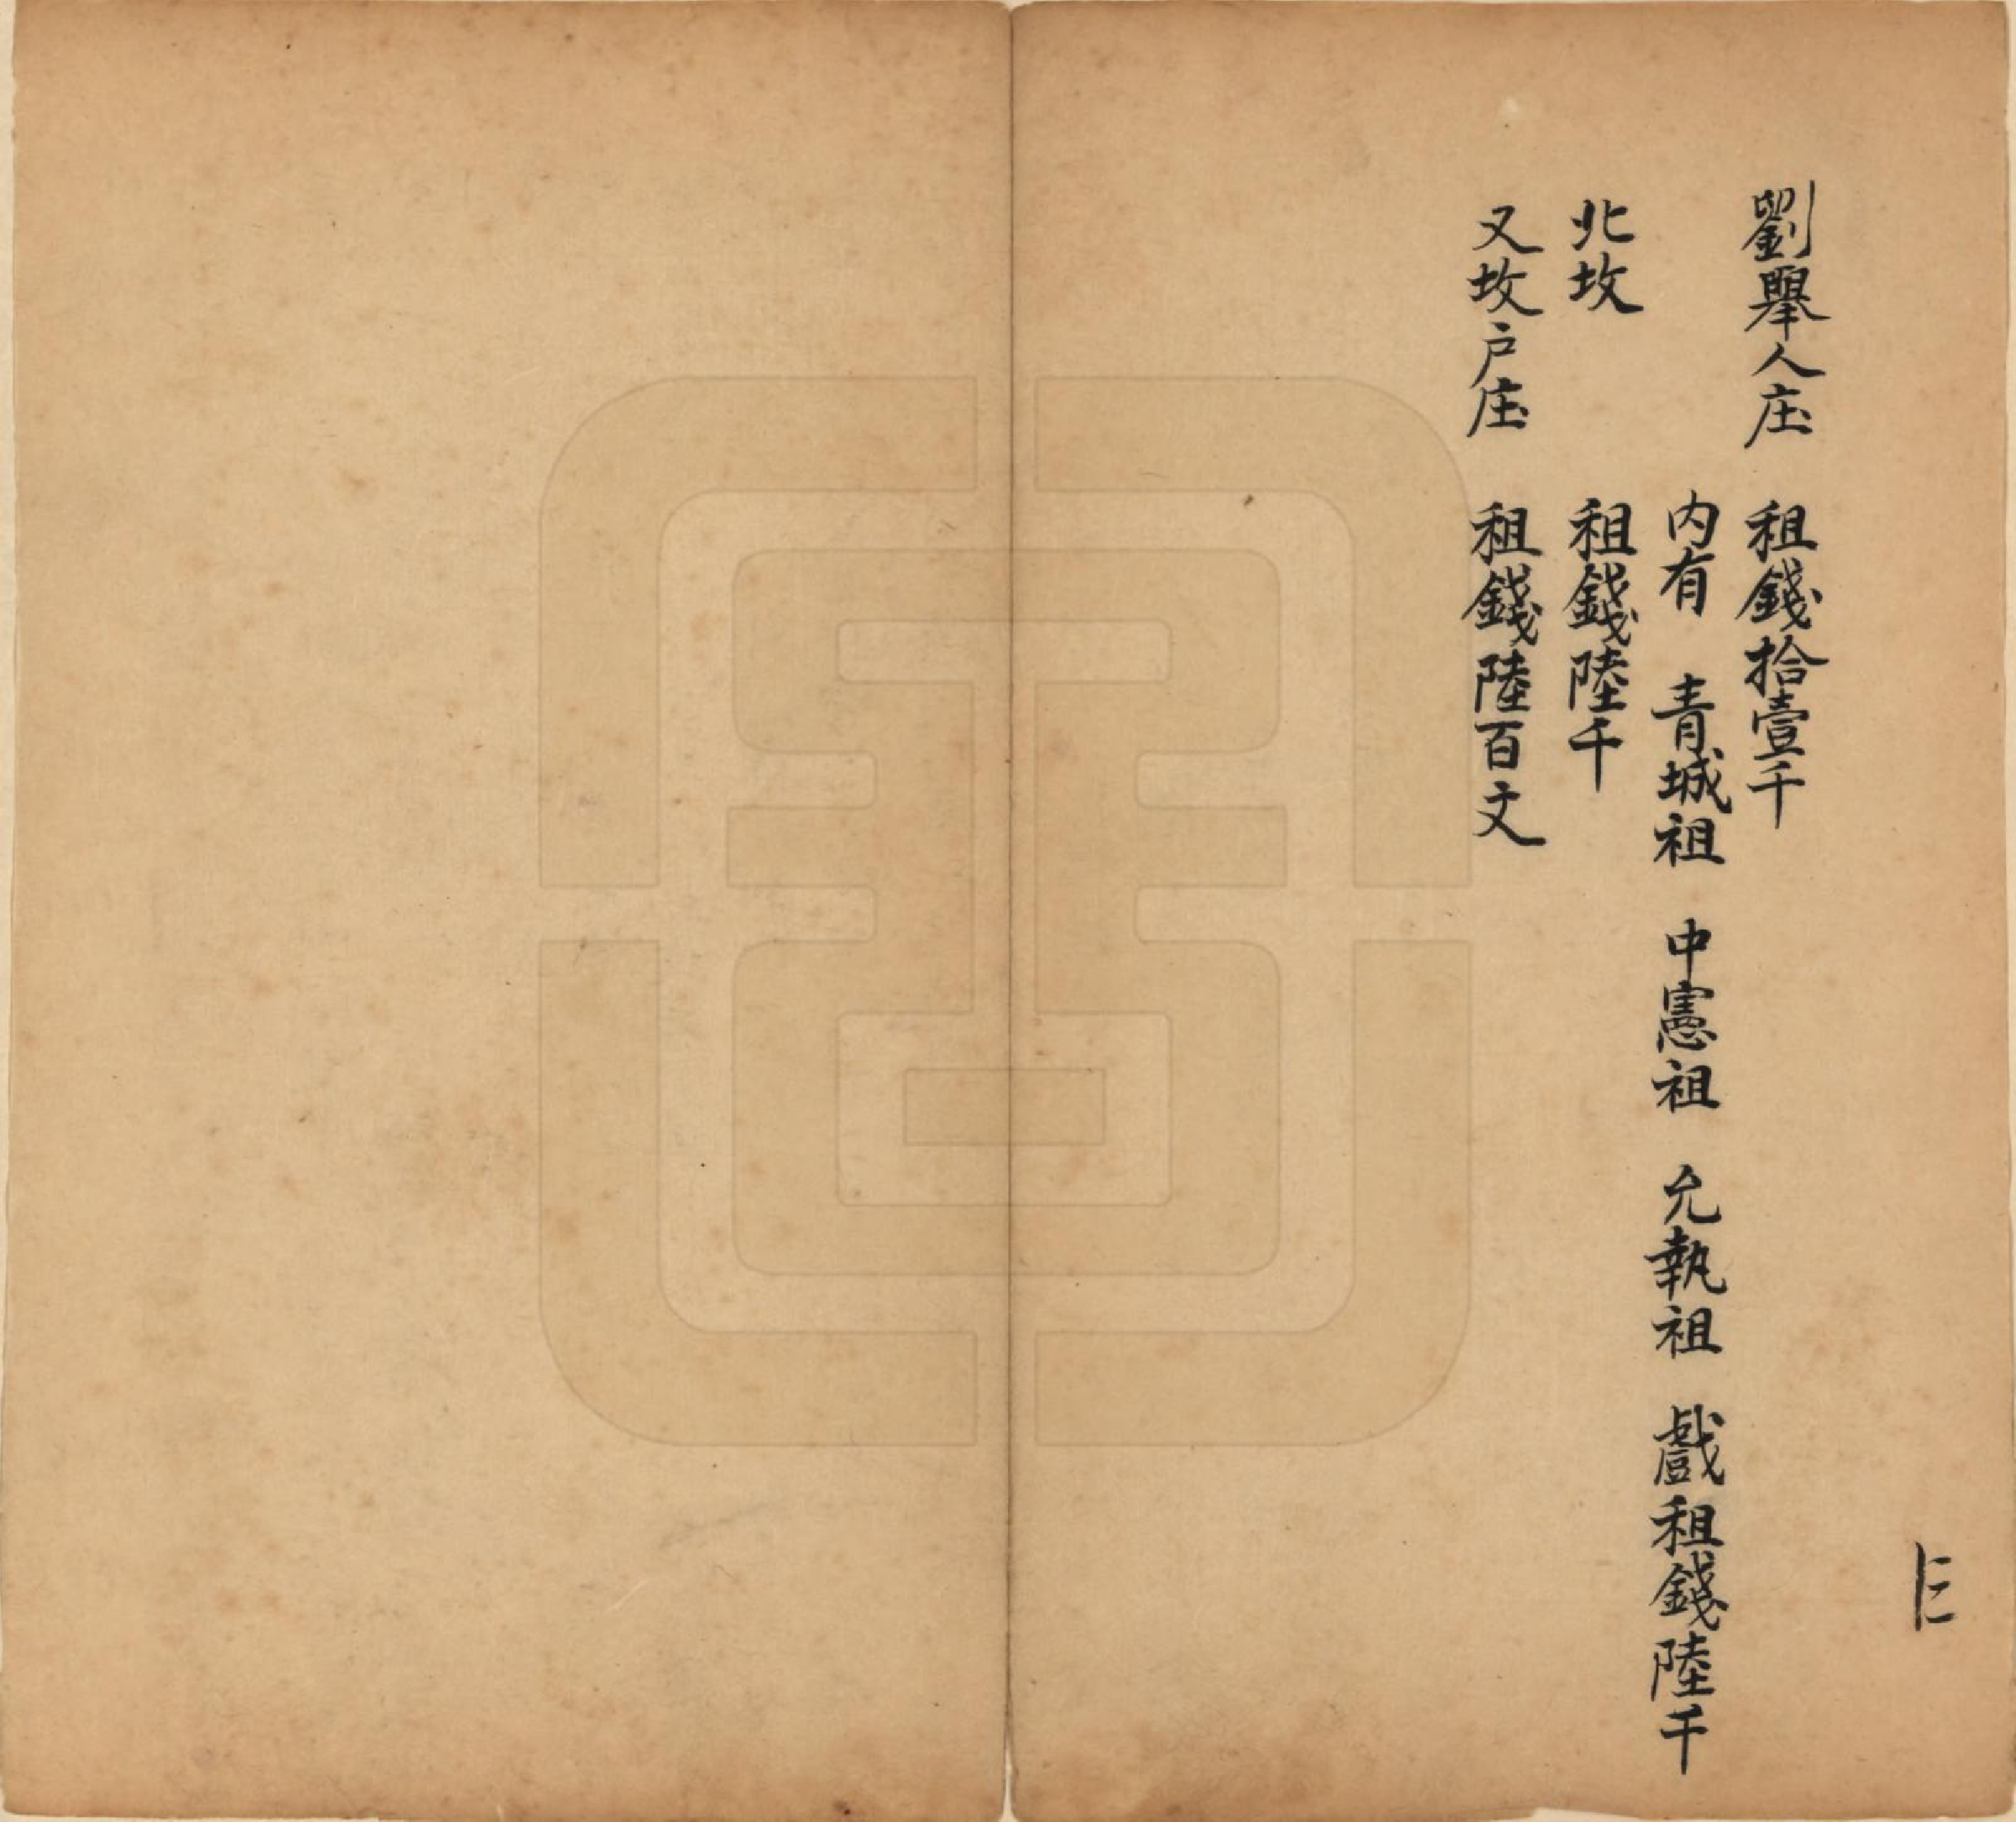 劉舉人庄 租錢拾壹千
内有 青城祖 中憲祖 允執祖 戲租錢陸千
北坟 租錢陸千
又坟户庄 租錢陸百文